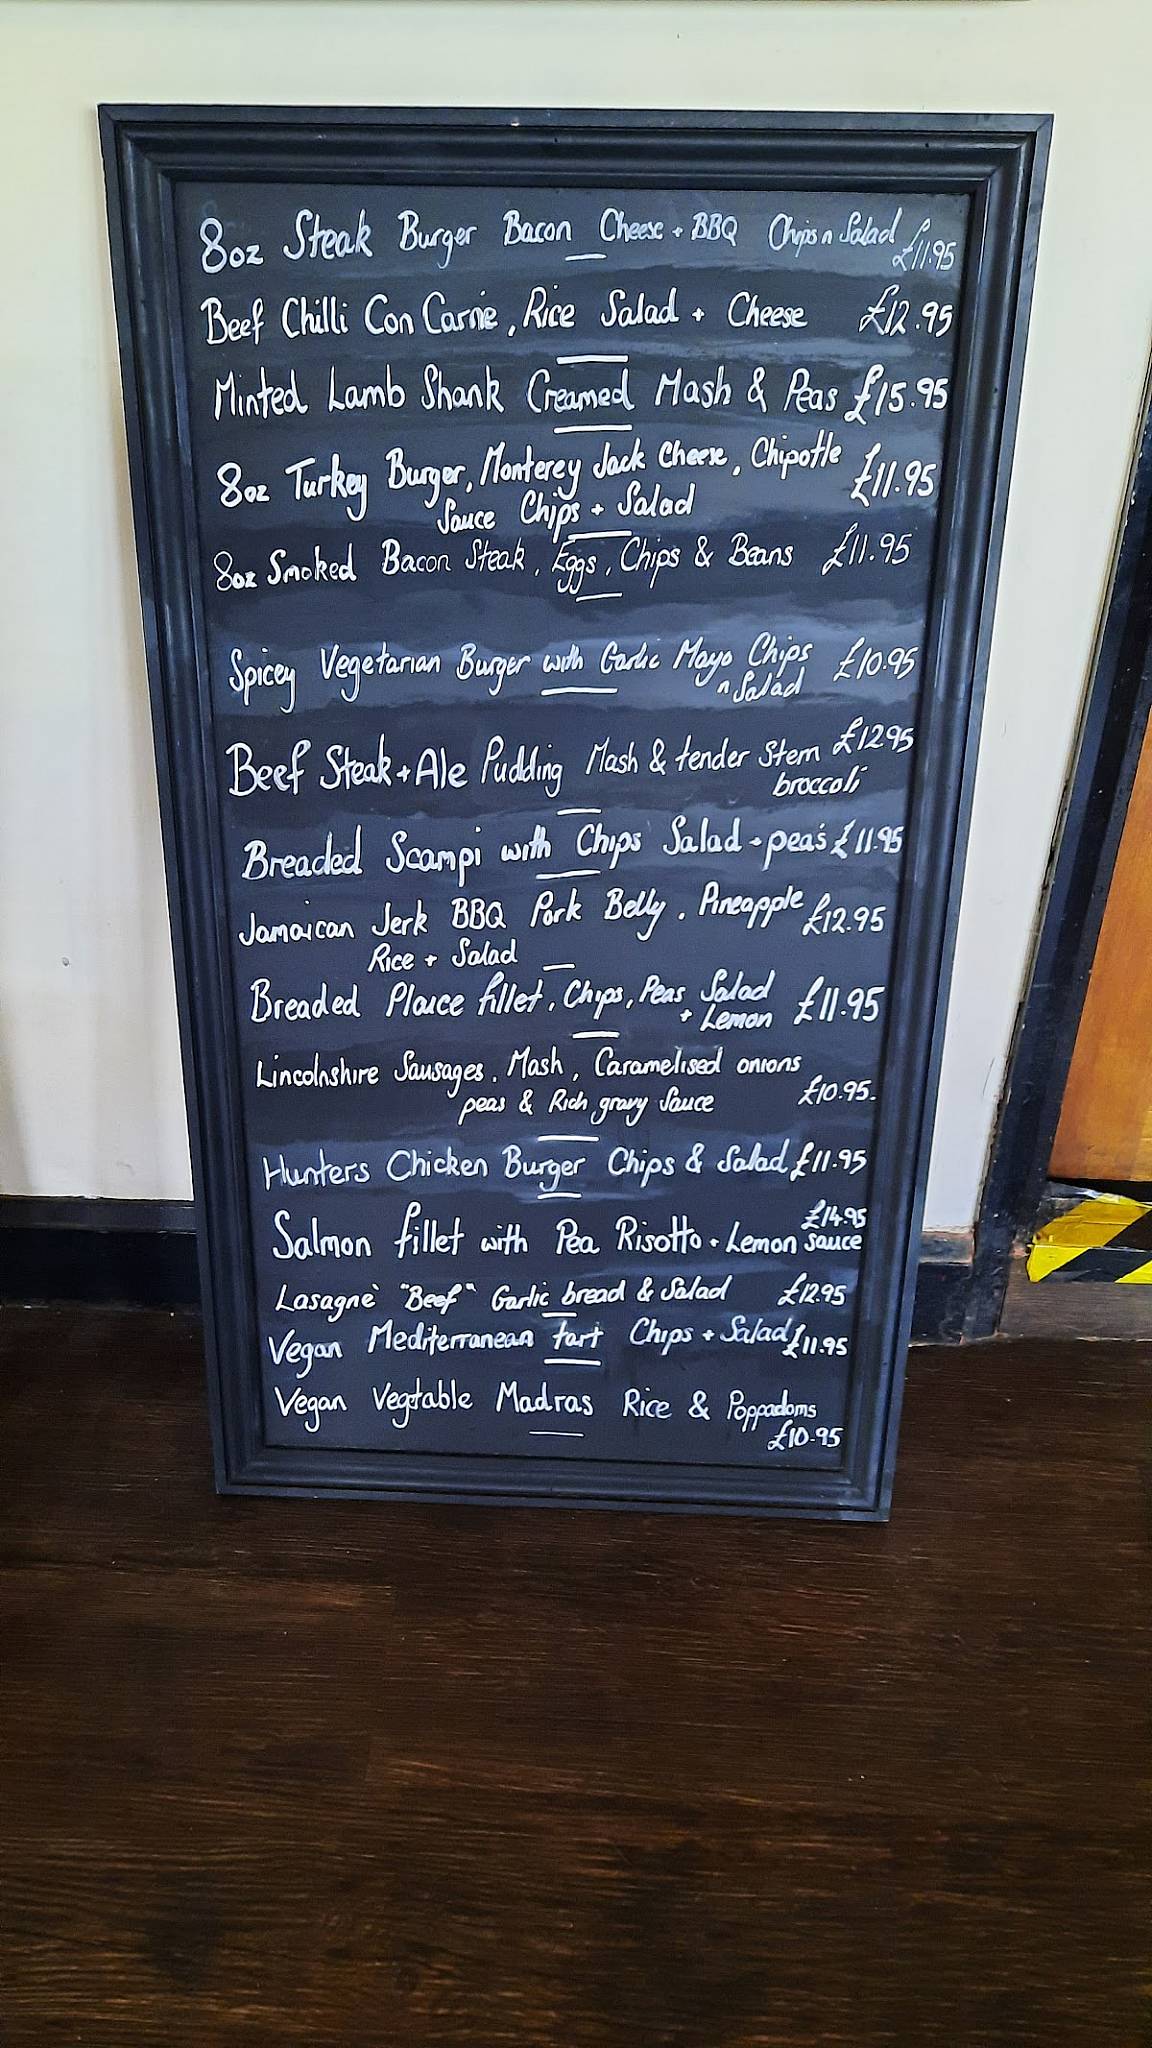 8oz Steak Burger Bacon Cheese + BBQ Chips n Salad £11.95
Beef Chilli Con Carne, Rice Salad + Cheese £12.95
Minted Lamb Shank Creamed Mash & Peas £15.95
8oz Turkey Burger, Monterey Jack Cheese, Chipotle £11.95
Sauce Chips + Salad
8oz Smoked Bacon Steak, Eggs, Chips & Beans £11.95
Spicey Vegetarian Burger with Garlic Mayo Chips £10.95
n Salad
Beef Steak + Ale Pudding Mash & tender Stem £12.95
broccoli
Breaded Scampi with Chips Salad + pea's £11.95
Jamaican Jerk BBQ Pork Belly, Pineapple £12.95
Rice + Salad
Breaded Plaice fillet, Chips, Peas Salad £11.95
+ Lemon
Lincolnshire Sausages, Mash, Caramelised onions
peas & Rich gravy Sauce £10.95.
Hunters Chicken Burger Chips & Salad £11.95
£14.95
Salmon fillet with Pea Risotto + Lemon Sauce
Lasagne' "Beef" Garlic bread & Salad £12.95
Vegan Mediterranean tart Chips + Salad £11.95
Vegan Vegtable Madras Rice & Poppadoms
£10.95